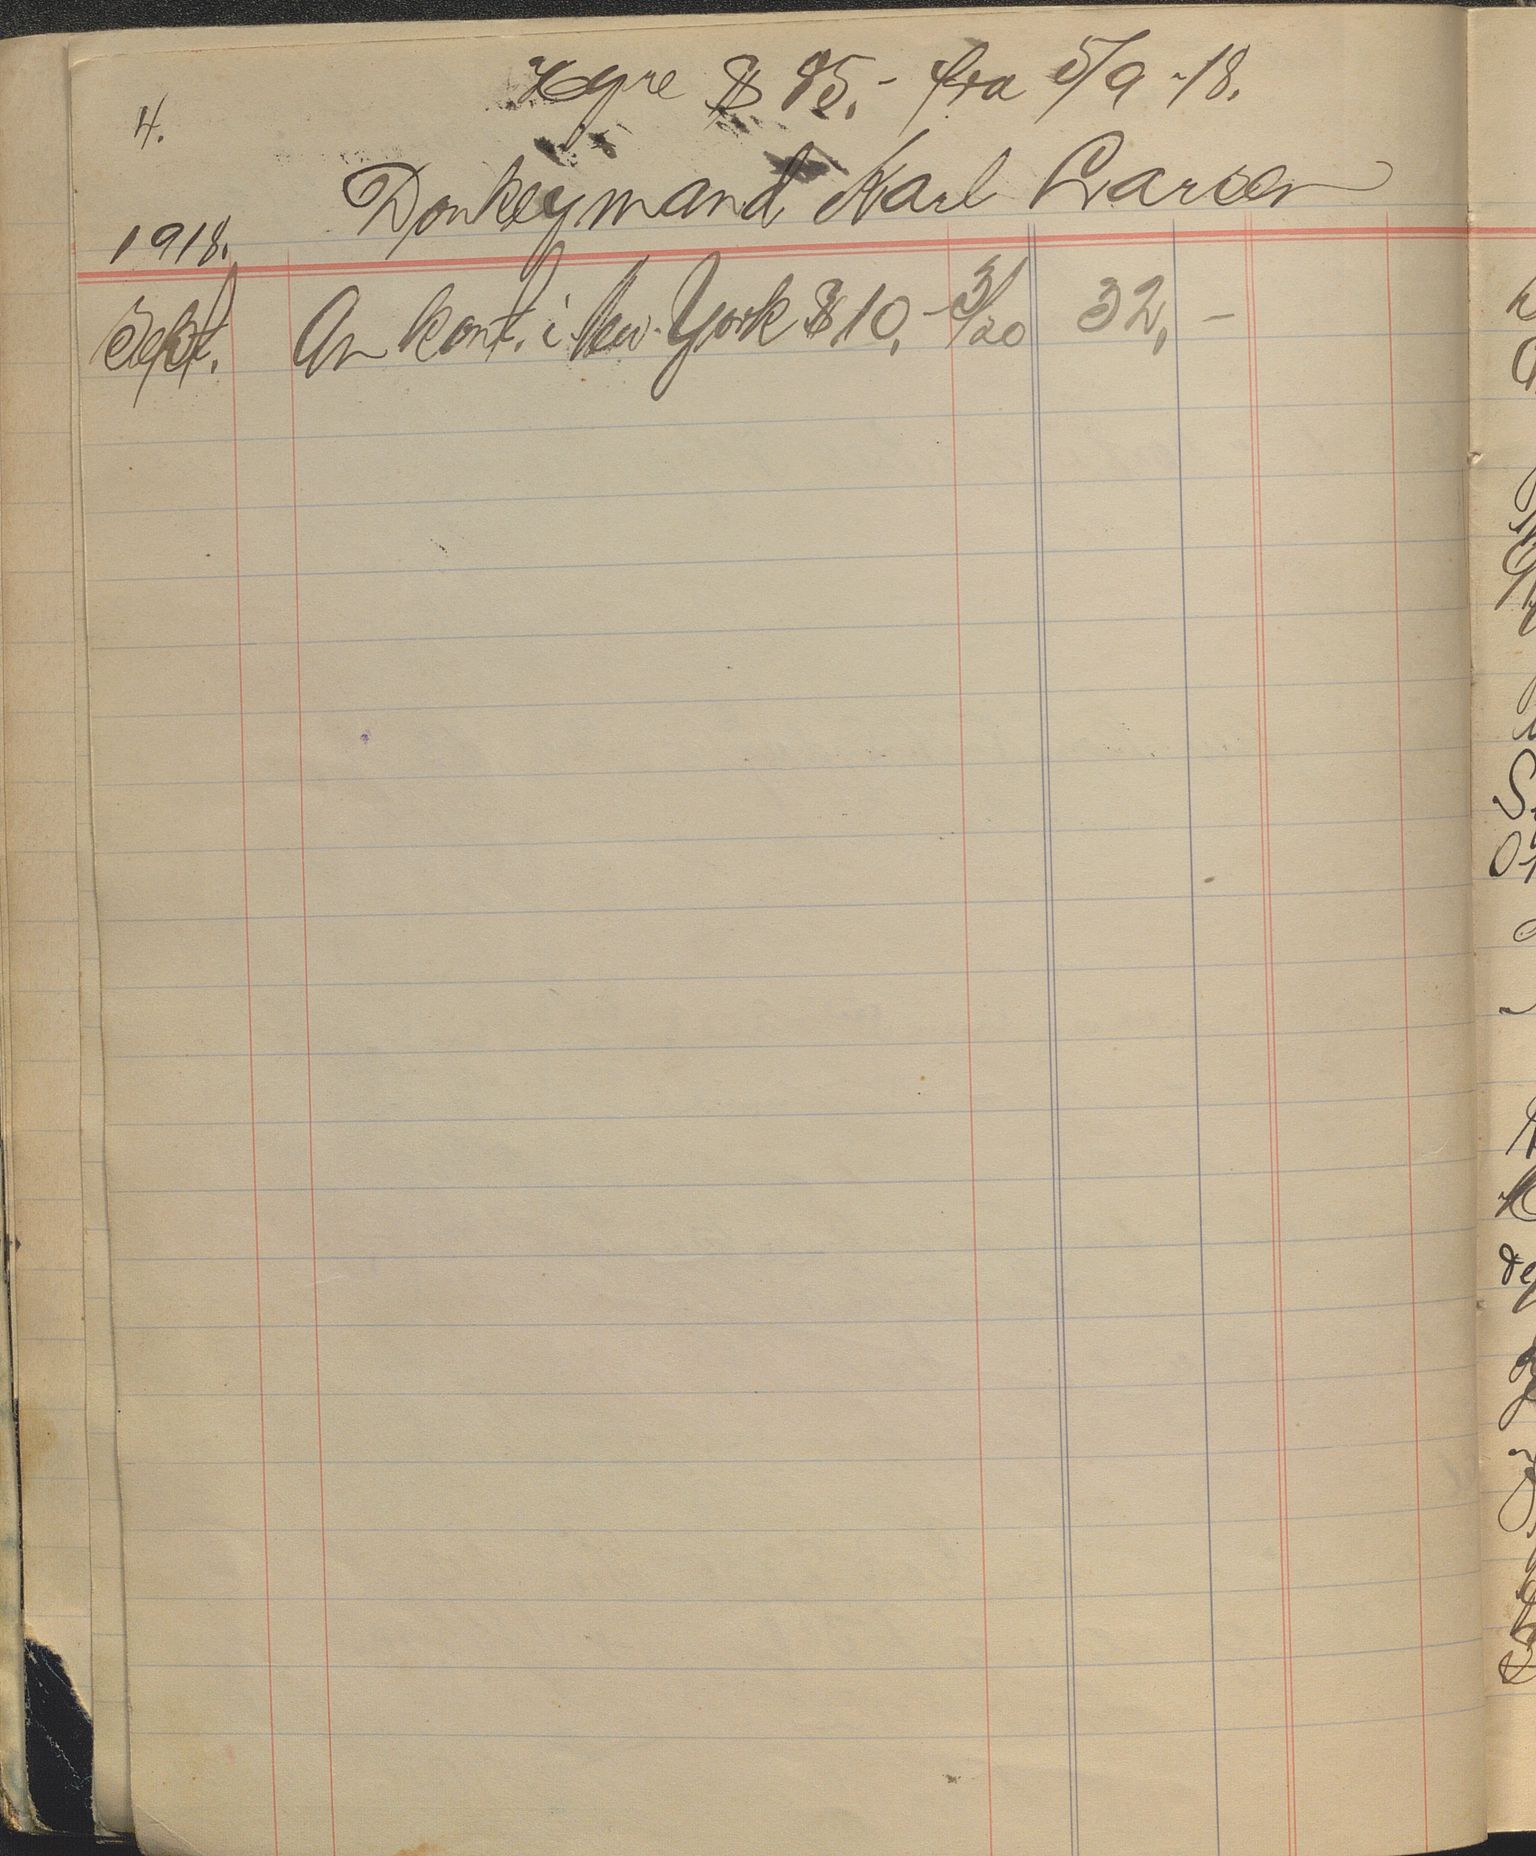 Hyre $ 85,- fra 5/9 -18.
4.
Donkeymand Karl Larsen
1918.
Sept. An kont. i New York $ 10,- 3/20 32,-